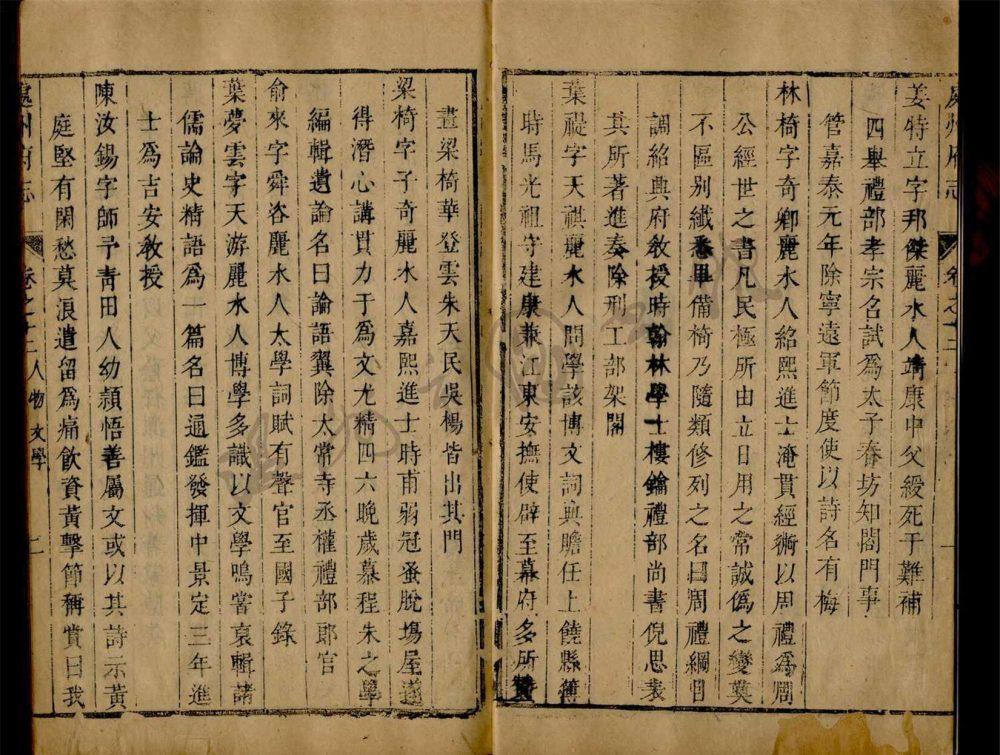 處州府志
卷之十二
一
姜特立字邦傑麗水人靖康中父綬死于難補
四舉禮部孝宗名試爲太子春坊知閤門事
管嘉泰元年除寧遠軍節度使以詩名有梅
林椅字奇卿麗水人紹熙進士淹貫經術以周禮爲周
公經世之書凡民極所由立日用之常誠僞之變莫
不區别纖悉畢備椅乃隨類修列之名曰周禮綱目
調紹興府敎授時翰林學士樓鑰禮部尚書倪思表
其所著進奏除刑工部架閣
葉禔字天祺麗水人問學該博文詞典贍任上饒縣簿
時馬光祖守建康兼江東安撫使辟至幕府多所贊
畫梁椅華登雲朱天民吳楊皆出其門
梁椅字子奇麗水人嘉熙進士時甫弱冠蚤脫塲屋遂
得潛心講貫力于爲文尤精四六晚歲慕程朱之學
編輯遺論名曰論語翼除大常寺丞權禮部郎官
俞來字舜咨麗水人太學詞賦有聲官至國子錄
葉夢雲字天游麗水人博學多識以文學鳴嘗裒輯諸
儒論史精語爲一篇名曰通鑑發揮中景定三年進
士爲吉安敎授
陳汝錫字師予靑田人幼穎悟善屬文或以其詩示黃
庭堅有閑愁莫浪遣留爲痛飮資黃擊節稱賞曰我
處州府志
卷之十二
人物 文學
二